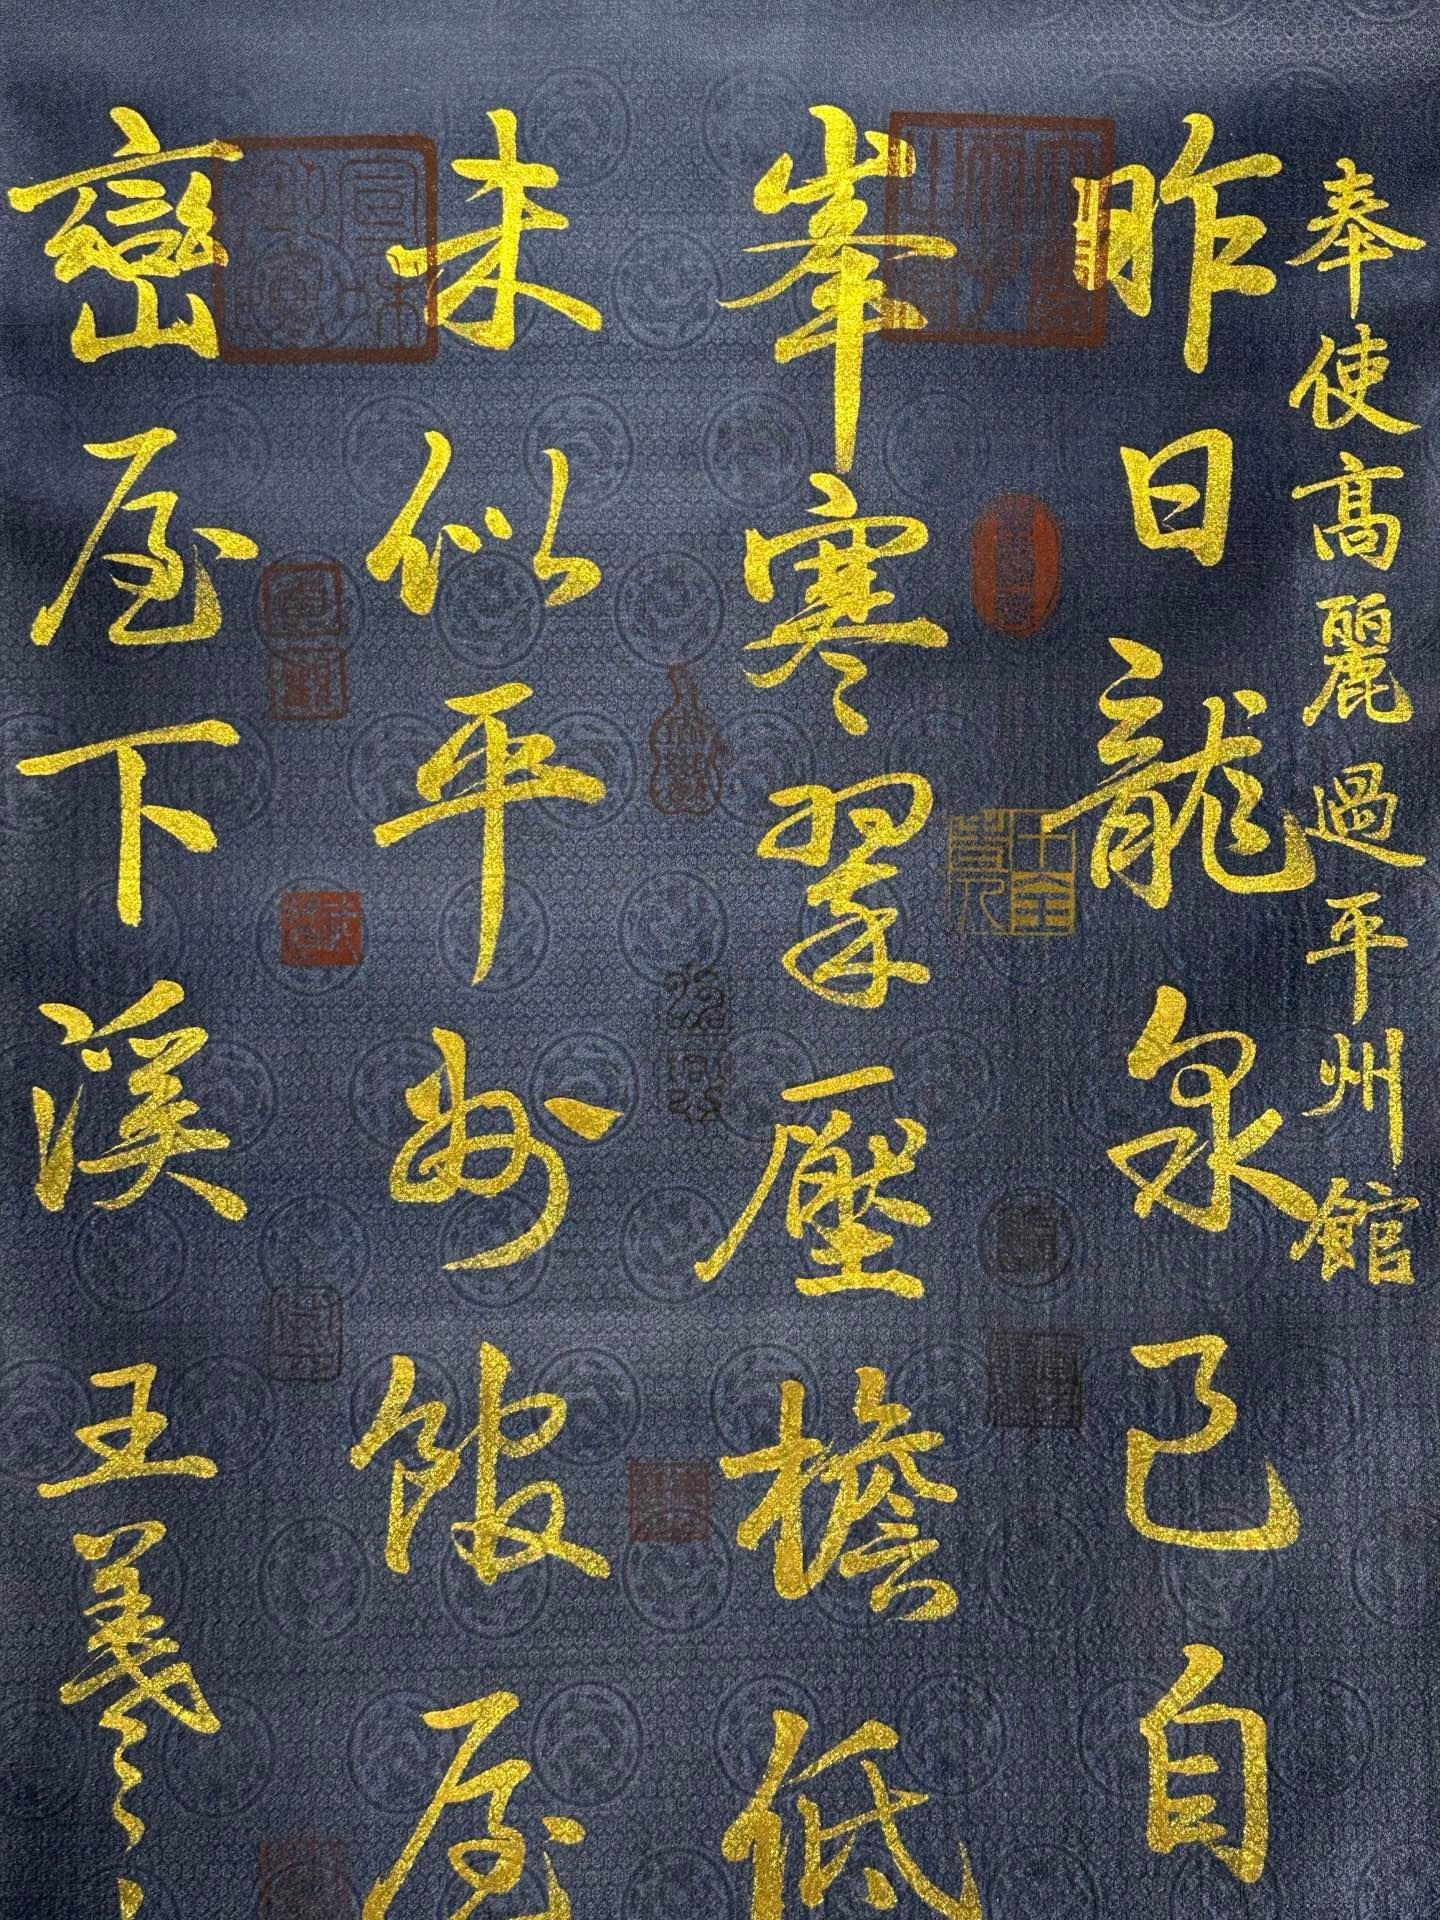 奉使高麗過平州館
昨日龍泉已自
峯寒翠壓檐低
未似平州館屋
巒屋下溪
王羲之